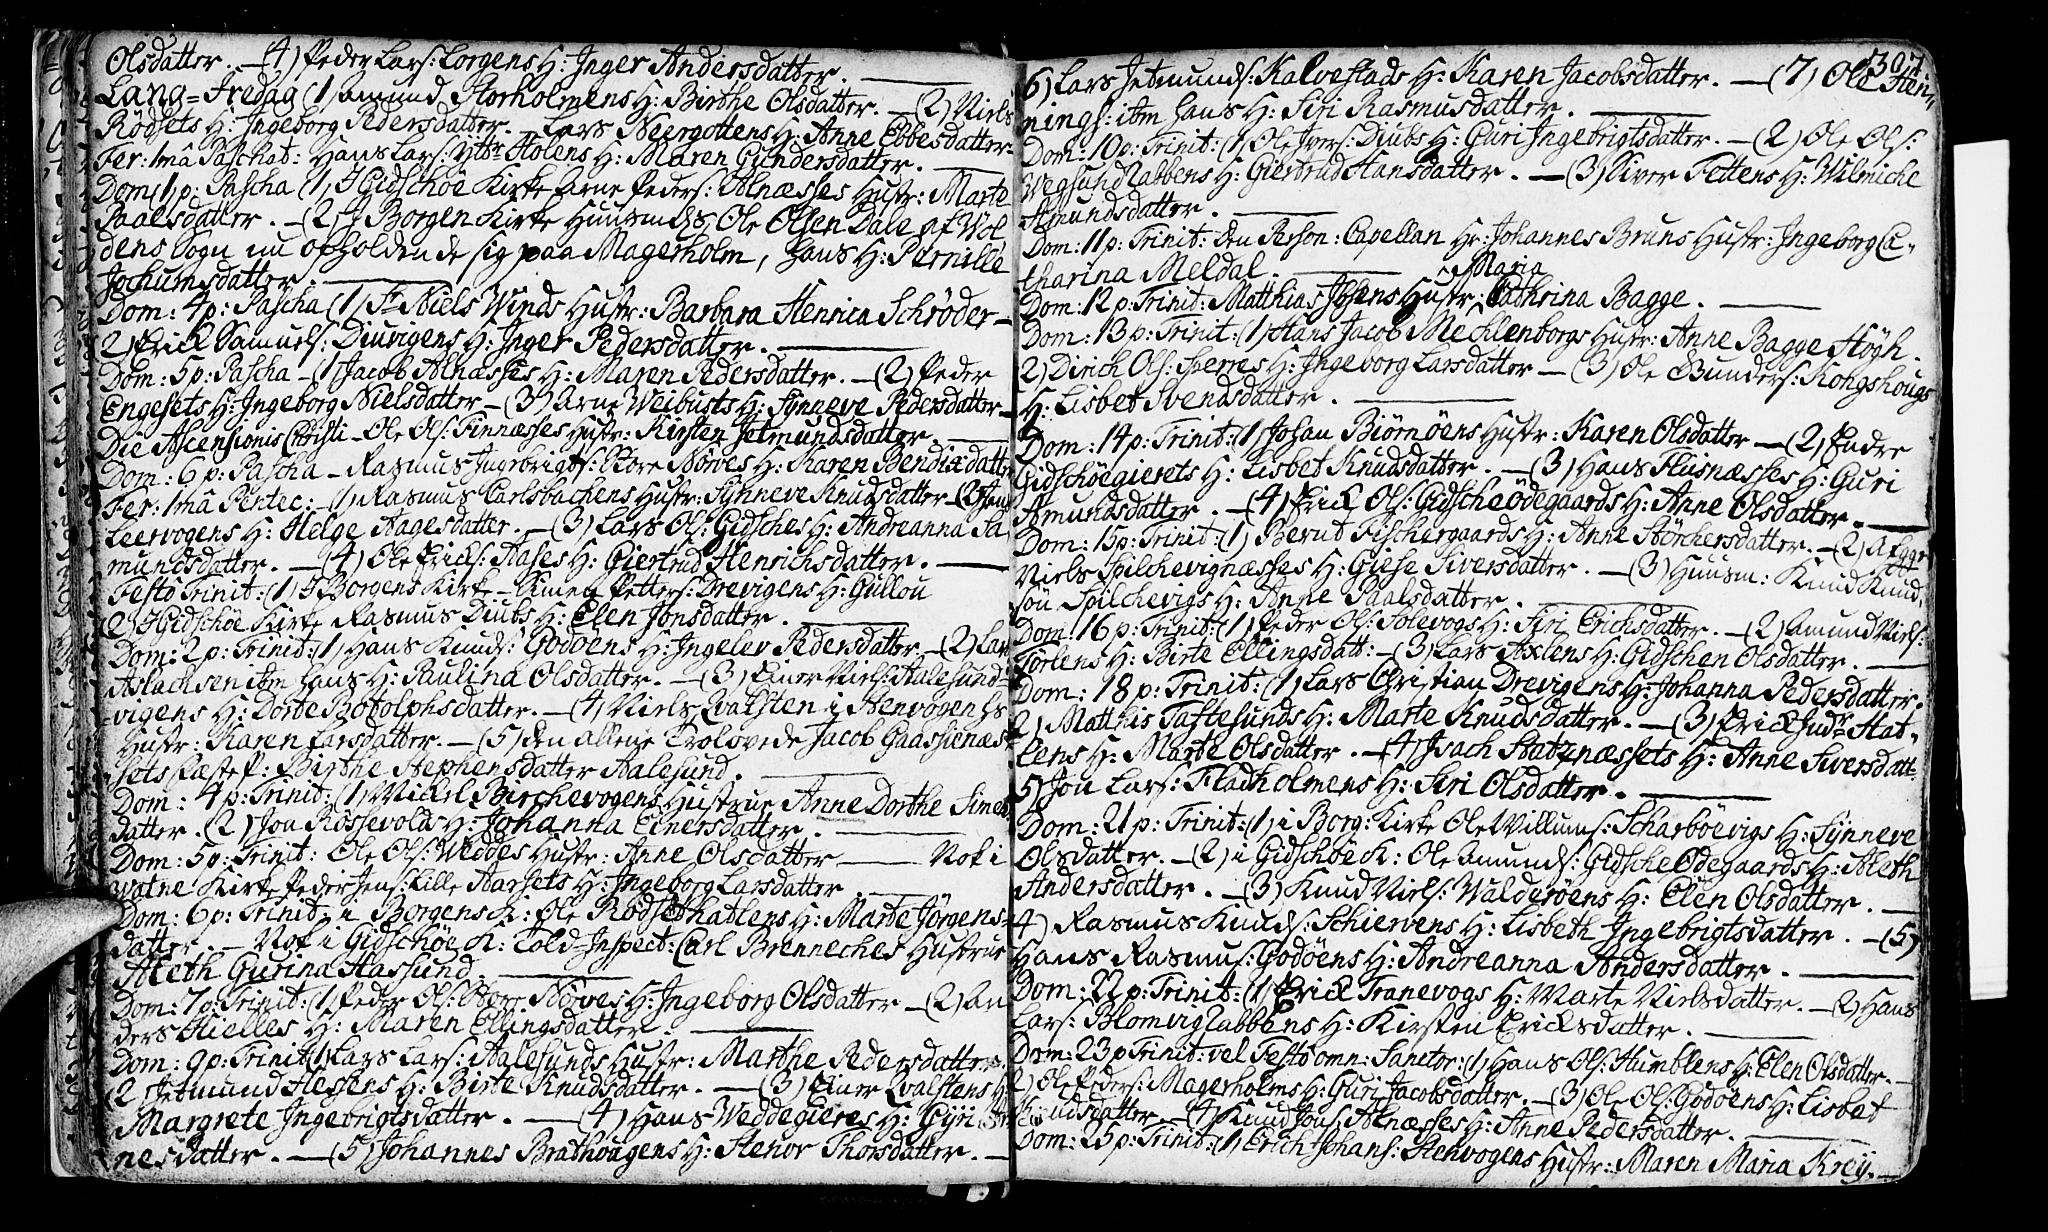 Olsdatter. — (4) Peder Lars: Lorgens H: Inger Andersdatter.
Lang-Fredag (1) Amund Storholmens H: Birthe Olsdatter. — (2) Niels
Rödsets H: Ingeborg Pedersdatter. Lars Neergottens H: Anne Ebbesdatter
Fer: 1mâ Paschat: Hans Lars: Ytr Holens H: Maren Gundersdatter.
Dom: 1 p: Pascha (1, I Gidschöe Kirke Arne Peders: Alnæsses Hustr: Marte
Paalsdatter. — (2 I Borgen Kirke Huusmds Ole Olsen Dale af Vol
dens Sogn nu opholdende sig paa Magerholm, hans H: Pernille
Jochumsdatter.
Dom: 4 p: Pascha (1) Sr Niels Winds Hustr: Barbara Henrica Schrøder —
2) Erick Samuels: Diuvigens H: Inger Pedersdatter.
Dom: 5 p: Pascha — (1) Jacob Alnæsses H: Maren Pedersdatter. — (2) Peder
Engesets H: Ingeborg Nielsdatter — (3) Arne Weibusts H: Synneve Pedersdatter —
Die Ascensionis Christi — Ole Ols: Finnæsses Hustr: Kirsten Jetmundsdatter.
Dom: 6 p: Pascha — Rasmus Ingebrigts: Store Nørves H: Karen Bendixdatter
Fer: 1mâ Pentec: — (1) Rasmus Carlsbachens Hustr: Synneve Knudsdatter — (2) Jens
Leervogens H: Helge Aagesdatter. — (3) Lars Ols: Gidsches H: Andreanna Aa
mundsdatter. — (4) Ole Ericks: Aases H: Giertrud Henrichsdatter.
Festo Trinit: (1) I Borgens Kirke — Simen Petters: Drevigens H: Gullou
2) I Gidschöe Kirke Rasmus Diubs H: Elen Jonsdatter.
Dom: 2 p: Trinit: (1) Hans Knuds: Godöens H: Ingelev Pedersdatter — (2) Lars
Aslachsen itm hans H: Paulina Olsdatter. — (3) Einer Niels: Aalesund-
vigens H: Dorte Botolphsdatter. — (4) Niels Qvalsten i Stenvogen hs
Hustr: Karen Larsdatter. — (5) den allene Trolovede Jacob Gaassienæs-
sets Fæstep: Birthe Stephensdatter Aalesund.
Dom: 4 p: Trinit: (1) Mickel Birchevogens Hustrue Anne Dorthe Simens
datter. (2) Jon Røssevolds H: Johanna Einersdatter.
Dom: 5 p: Trinit: Ole Ols: Weddes Hustr: Anne Olsdatter — Nok i
Watne Kirke Peder Jens: Lille Aarsets H: Ingeborg Larsdatter.
Dom: 6 p: Trinit, i Borgens K: Ole Rødsethatlens H: Marte Jörgens-
datter. — Nok i Gidschöe K: Told-Inspect: Carl Brenneches Hustrue
Aleth Gurina Hassund.
Dom: 7 p: Trinit: (1) Peder Ols: Store Nørves H: Ingeborg Olsdatter — (2) An
ders Hielles H: Maren Ellingsdatter.
Dom: 9 p: Trinit (1) Lars Lars: Aalesunds Hustr: Marthe Pedersdatter
(2 Jetmund Hessens H: Birte Knudsdatter. — (3) Einer Qvalstens H
Margrete Ingebrigtsdatter. — (4) Hans Weddegieres H: Gyri
nesdatter. — (5) Johannes Brathougens H: Stenor Thorsdatter. —
307
6) Lars Jetmunds: Kalvestads H: Karen Jacobsdatter. — (7) Ole Hen-
nings: itm hans H: Siri Rasmusdatter.
Dom: 10 p: Trinit: (1) Ole Ivers: Diubs H: Guri Ingebrigtsdatter. — (2) Ole Ols:
WegsundRabbens H: Giertrud Hansdatter. — (3) Siver Fettens H: Wilmiche
Amundsdatter.
Dom: 11 p: Trinit: den Person: Capellan Hr: Johannes Bruns Hustr: Ingeborg Ca-
tharina Meldal.
Maria
Dom: 12 p: Trinit: Matthias Josens Hustr: Cathrina Bagge.
Dom: 13 p: Trinit: (1) Hans Jacob Mechlenborgs Hustr: Anne Bagge Høgh.
2) Dirich Ols: Sperres H: Ingeborg Larsdatter — (3) Ole Gunders: Kongshougs
H: Lisbet Svendsdatter.
Dom: 14 p: Trinit: (1) Johan Biörnöens Hustr: Karen Olsdatter — (2) Endre
Gidschöegierets H: Lisbet Knudsdatter. — (3) Hans Fliisnæsses H: Guri
Amundsdatter. — (4) Erick Ols: Gidscheödegaards H: Anne Olsdatter. —
Dom: 15 p: Trinit: (1) Bernt Fischergaards H: Anne Störchersdatter. — (2) Afgge
Niels Spilchevignæsses H: Giese Siversdatter. — (3) Huusm: Knud Knud-
sön Spilchevigs H: Anne Paalsdatter.
Dom: 16 p: Trinit: (1) Peder Ols: Solevogs H: Siri Erichsdatter. — (2) Amund Niels:
Torlens H: Birte Ellingsdatt: — (3) Lars Axlens H: Gidschen Olsdatter.
Dom: 18 p: Trinit: (1) Lars Christian Drevigens H: Johanna Pedersdatter.
2) Matthis Taftesunds H: Marte Knudsdatter. — (3) Erick Indr Hat-
lens H: Marte Olsdatter. — (4) Isach Slatznæssets H: Anne Siversdatt
5) Jon Lars: Fladholmens H: Siri Olsdatter.
Dom: 21 p: Trinit: (1) i Borg: Kirke Ole Willums: Scharböevigs H: Synneve
Olsdatter. — (2) i Gidschöe K: Ole Amunds: Gidsche Ödegaards H: Aleth
Andersdatter. — (3) Knud Niels: Walderöens H: Elen Olsdatter.
4) Rasmus Knuds: Schiervens H: Lisbeth Ingebrigtsdatter. — (5)
Hans Rasmus: Godöens H: Andreanna Andersdatter.
Dom: 22 p: Trinit: (1) Erick Tranevogs H: Marte Nielsdatter. — (2) Hans
Lars: BlomvigRabbens H: Kirsten Ericksdatter.
Dom: 23 p Trinit: vel Festo omn: Sanctor: (1) Hans Ols: Humblens H: Elen Olsdatter.
2) Ole Peders: Magerholms H: Guri Jacobsdatter. — (3) Ole Ols: Godöens H: Lisbet
Knudsdatter — (4) Knud Jons: Alnæsses H: Anne Pedersdatter.
Dom: 25 p: Trinit: (1) Erich Johans: Stenvogens Hustr: Maren Maria Kreÿ. —